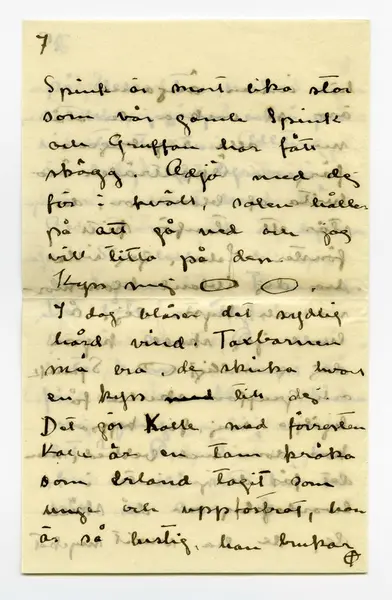 7
Spink är snart lika stor
som vår gamla Spink
och Gruffan har fått
skägg. Adjö med dej
för i kväll, solen håller
på att gå ned och jag
vill titta på den.
Kyss mej
I dag blåser det sydlig
hård vind. Taxbarnen
må bra, de skicka hvar
en kyss med till dej.
Det gör Kalle med förresten
Kalle är en tam kråka
som Erland tagit som
unge och uppfostrat, han
är så lustig, han brukar